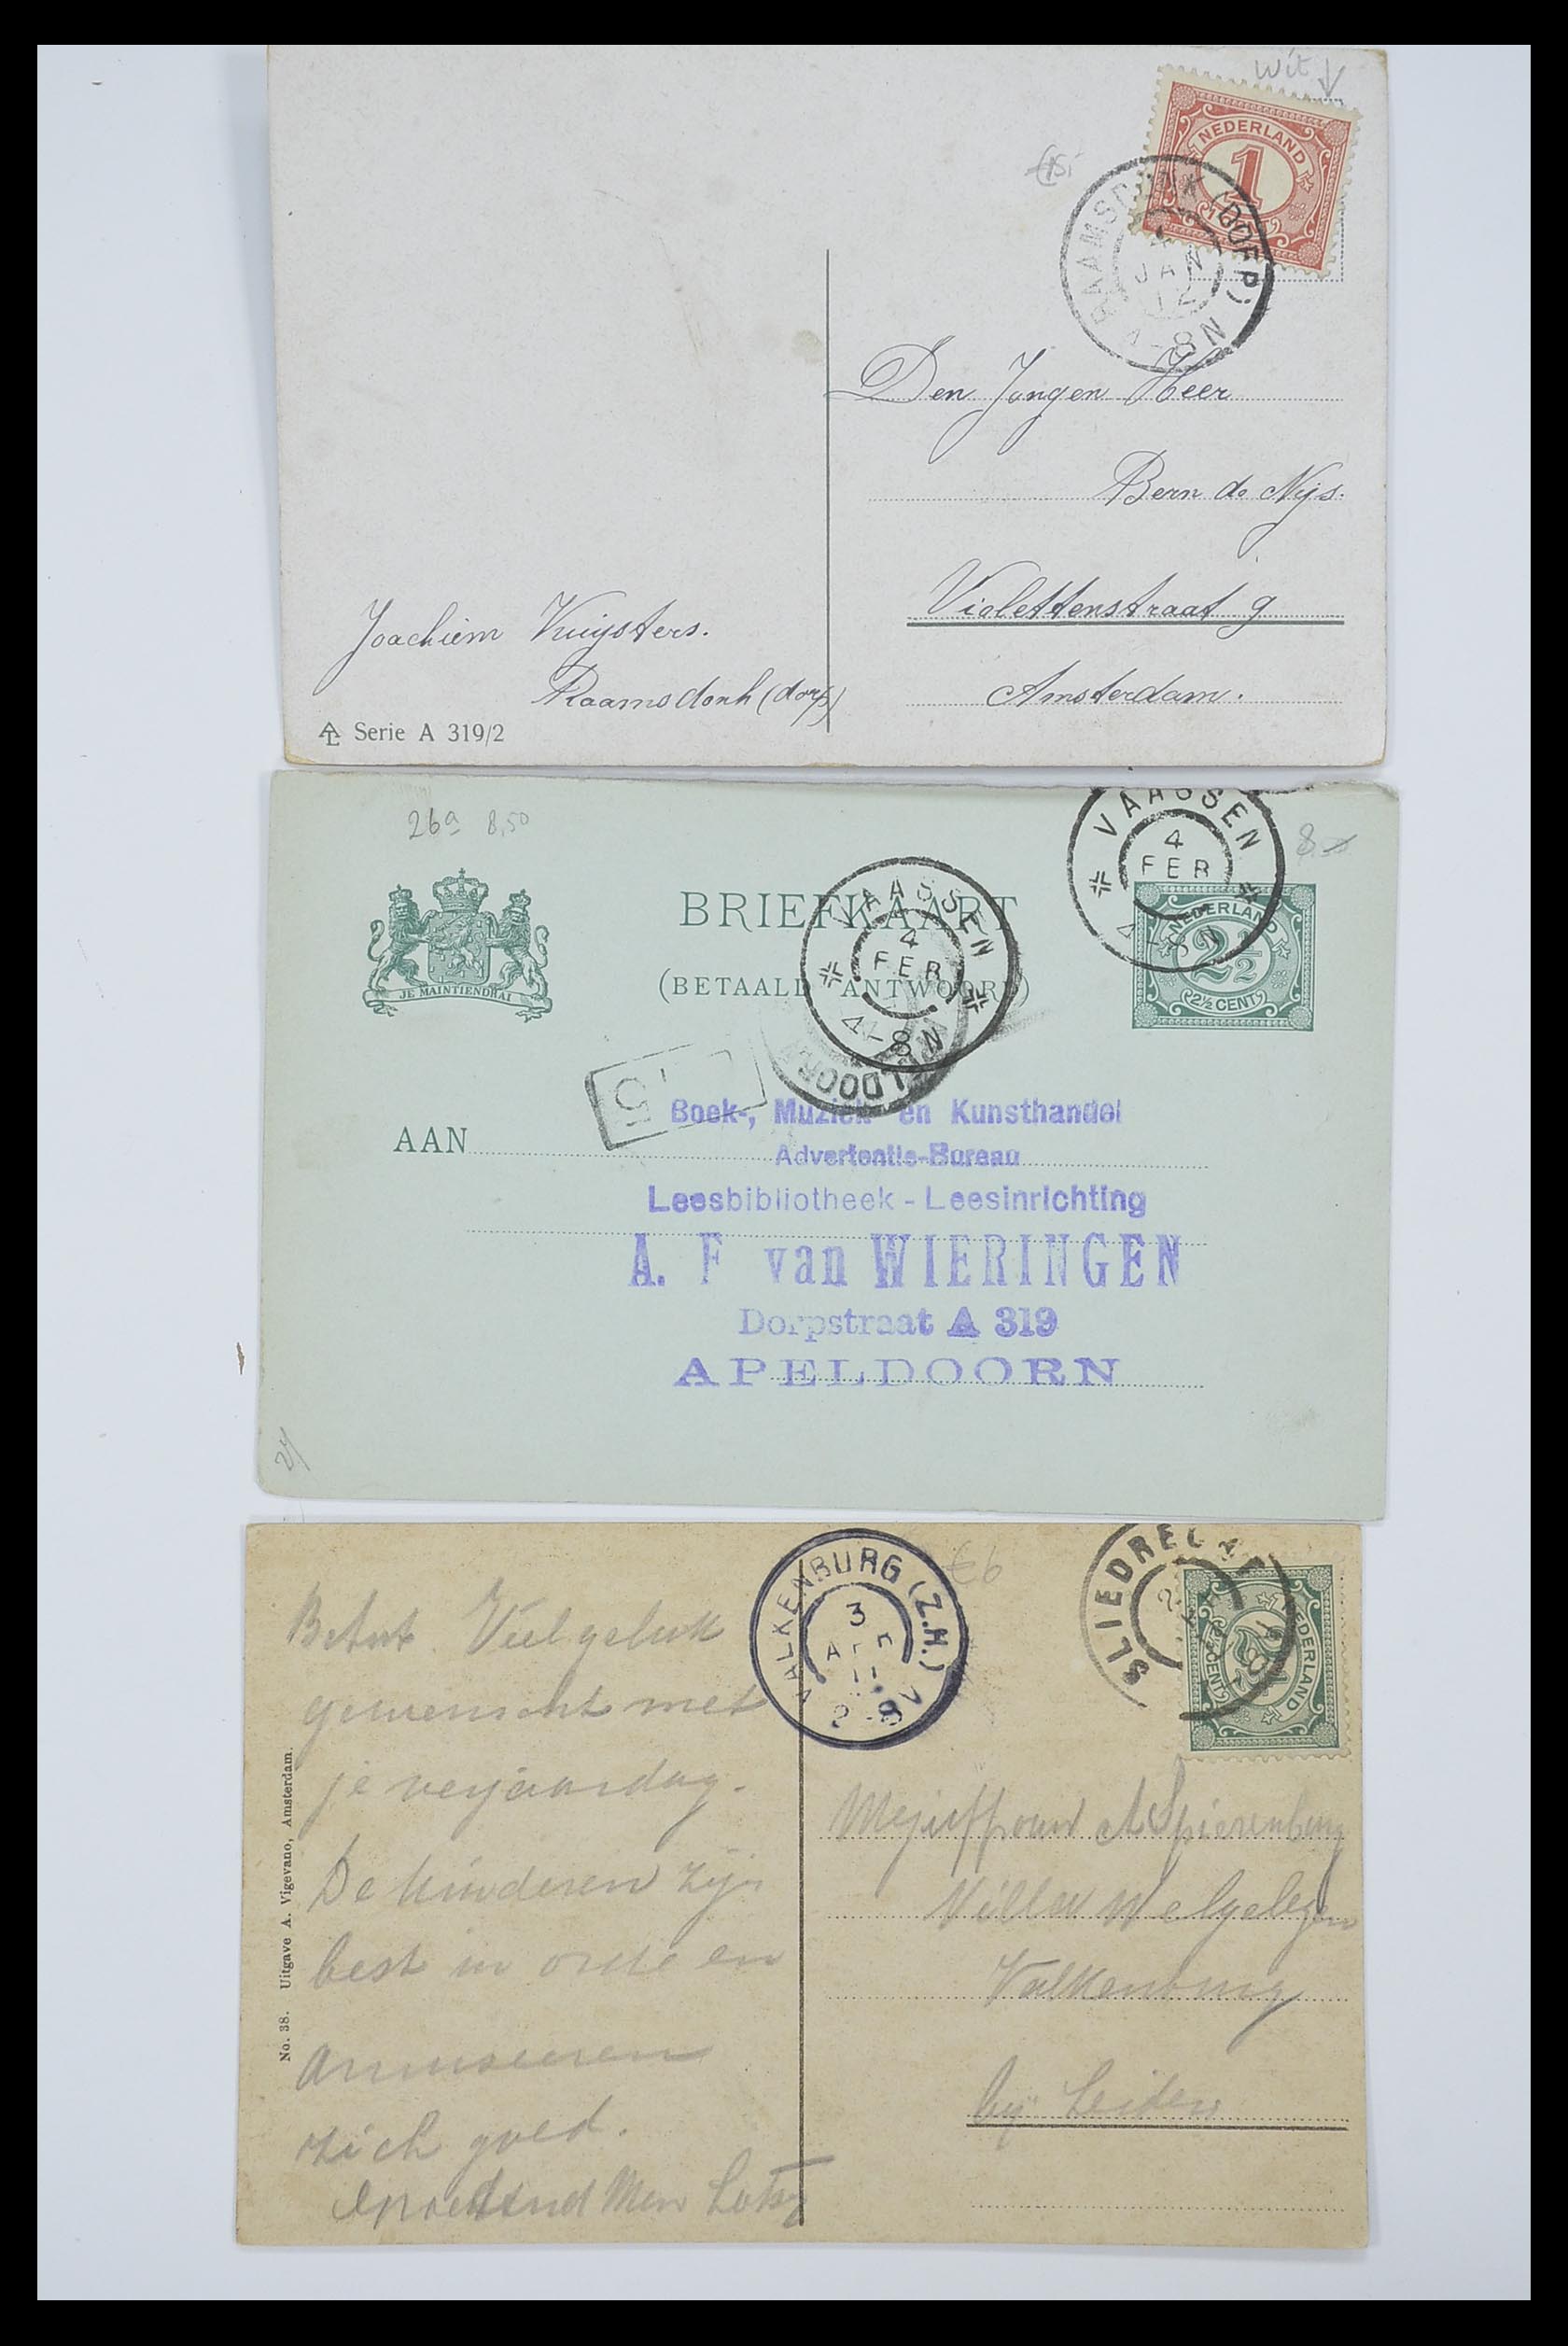 wit
NEDERLAND
1
RAAMSDONK (DORP)
JAN
12
-8N
Den Jongen Heer
Bern de Nijs.
Violettenstraat 9
Amsterdam.
Joachiem Vuijsters.
Raamsdonk (dorp)
Serie A 319/2
26a 8,50
VAASSEN
4
FEB
4-8N
BRIEFKAART
(BETAALD ANTWOORD)
VAASSEN
4
FEB
4-8N
NEDERLAND
2½
2½ CENT
JE MAINTIENDRAI
APELDOORN
5
AAN
Boek-, Muziek- en Kunsthandel
Advertentie-Bureau
Leesbibliotheek - Leesinrichting
A. F van WIERINGEN
Dorpstraat A 319
APELDOORN
€6
VALKENBURG (Z.H.)
3
11
2-8V
SLIEDRECHT
NEDERLAND
2½ CENT
Veel geluk
gewenscht met
je verjaardag.
De kinderen zijn
best in orde en
amuseeren
zich goed.
Mejuffrouw A Spierenburg
Villa Welgelegen
Valkenburg
bij Leiden
No. 38. Uitgave A. Vigevano, Amsterdam.